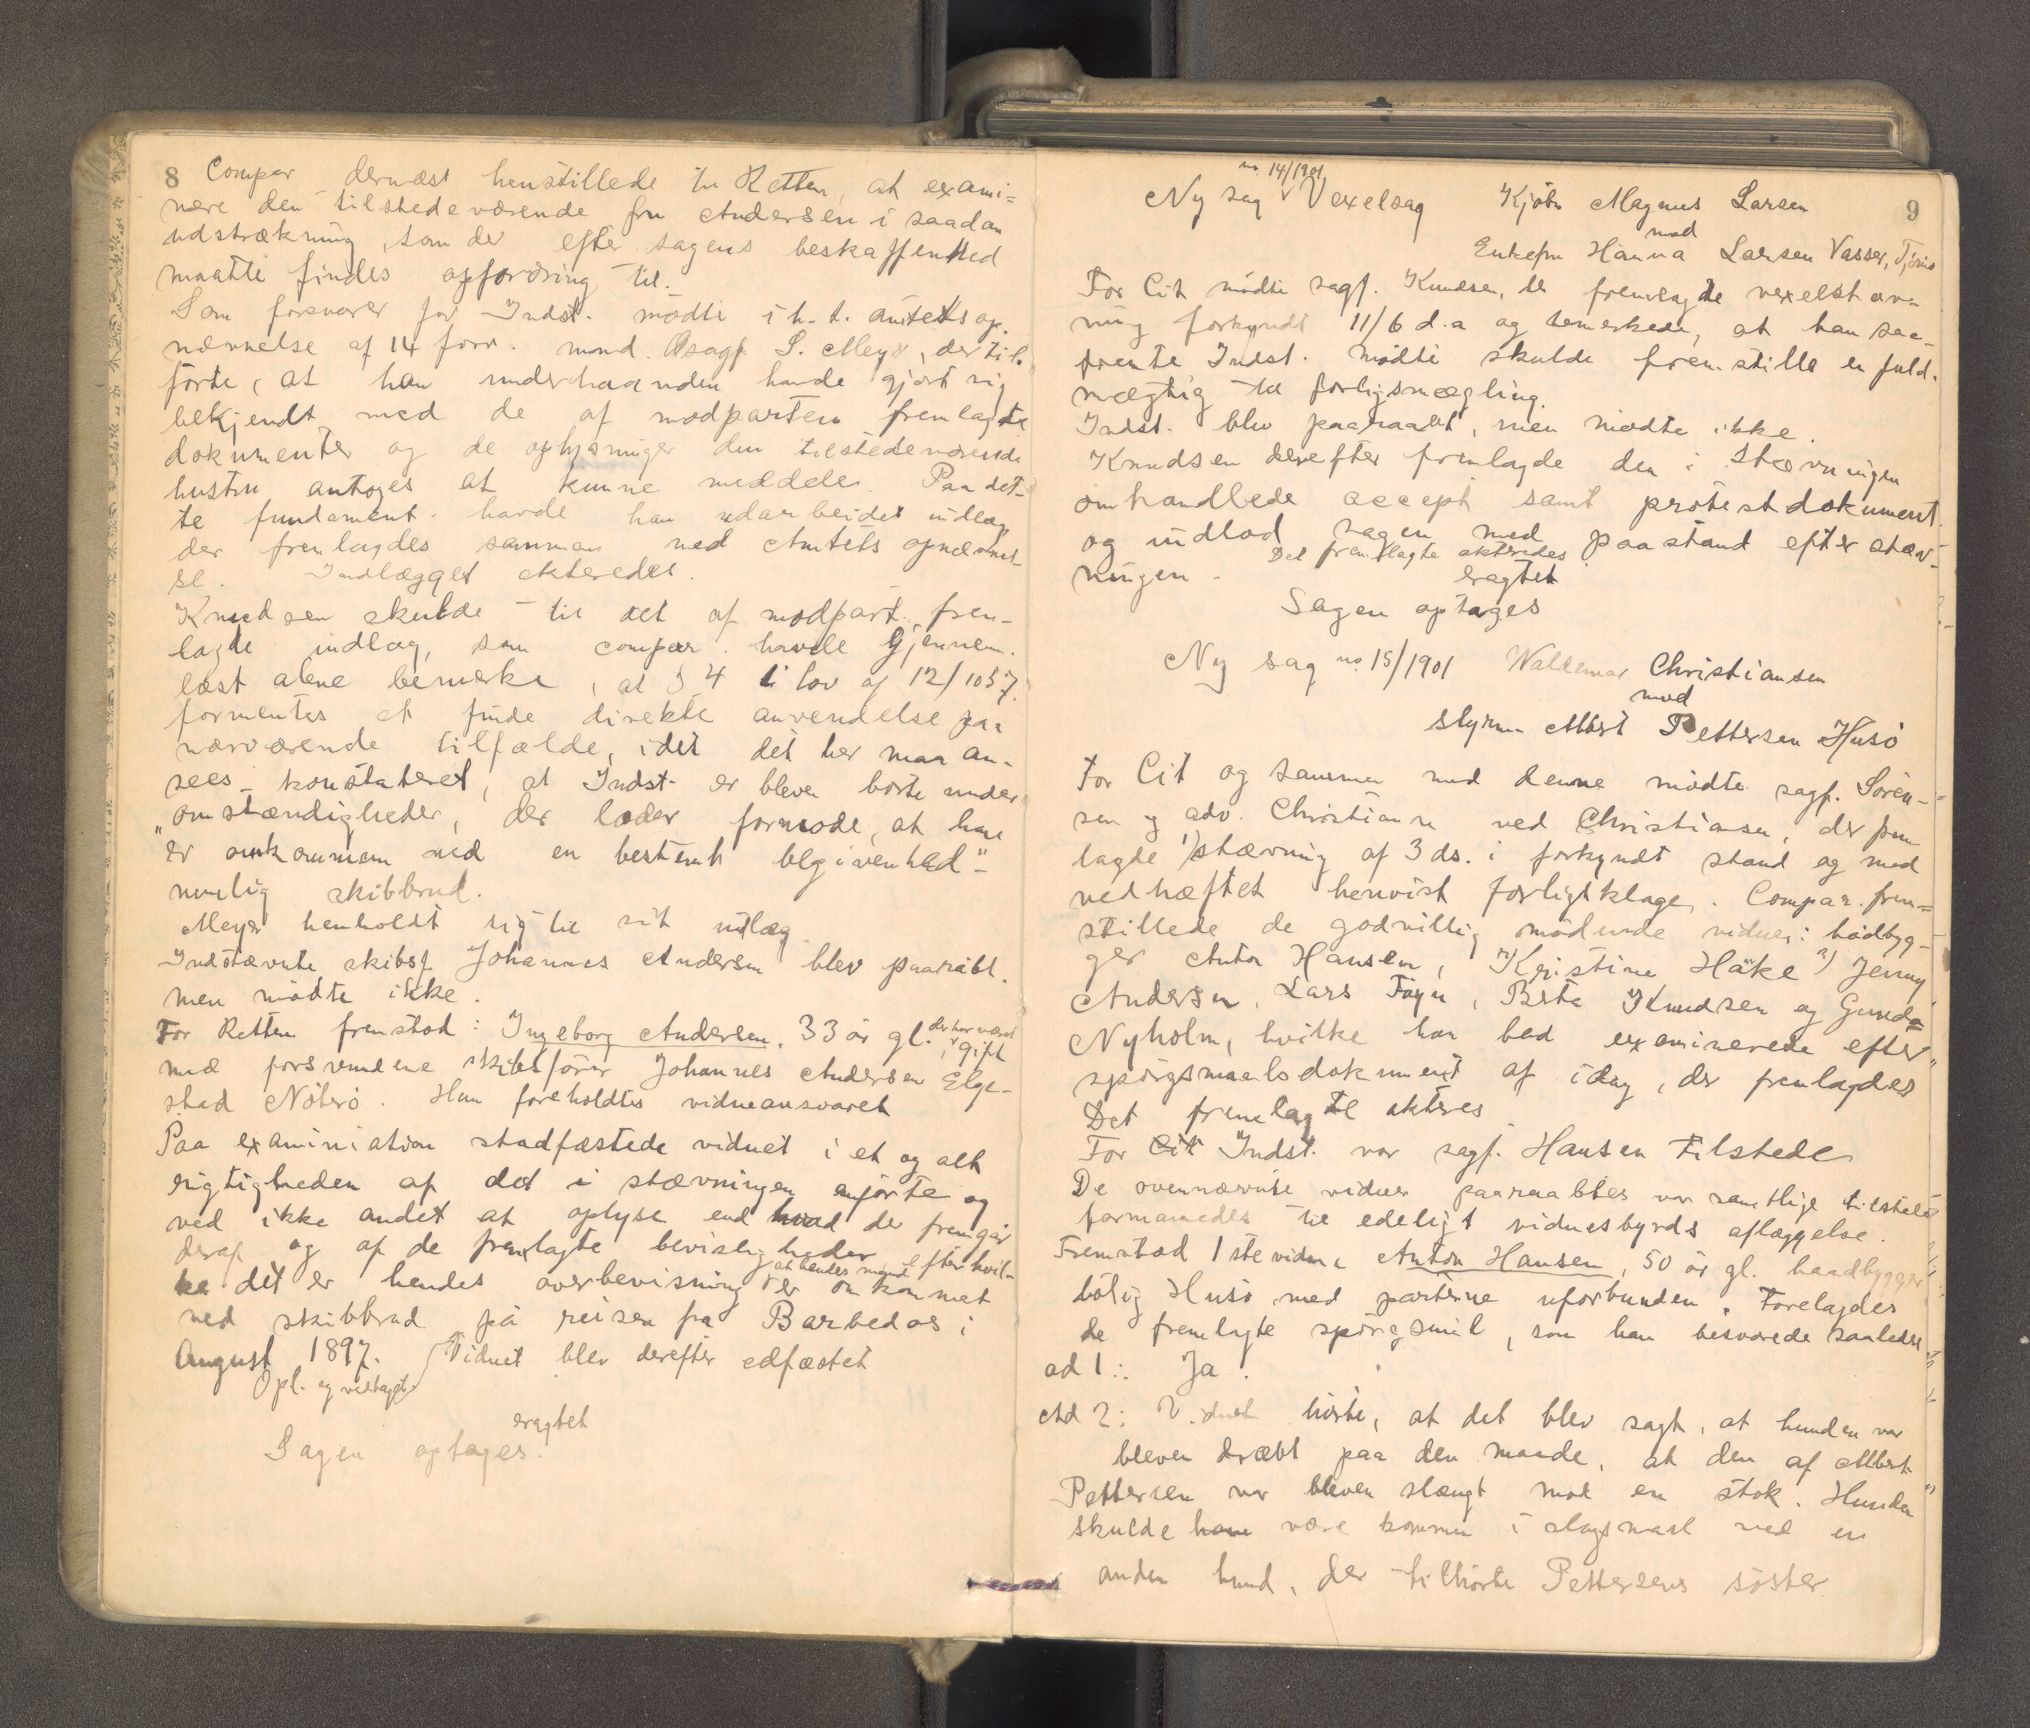 8 Compar dernæst henstillede til Retten, at exami=
nere den tilstedeværende fru Andersen i saadan
udstrækning, som der efter sagens beskaffenhed
maatte findes opfordring til.
Som forsvarer for Indst. mødte i h. t. amtets op.
nævnelse af 14 forr. mnd. O.sagf. S. Meyer, der til.
førte, at han underhaanden havde gjort sig
bekjendt med de af modparten fremlagte
dokumenter og de oplysninger den tilstedeværende
hustru antoges at kunne meddele. Paa det-
te fundament havde han udarbeidet indlæg
der fremlagdes sammen med Amtets opnævnel-
se. Indlægget akteredes.
Knudsen skulde til det af modpart. frem-
lagte indlæg, som compar. havde gjennem.
læst alene bemerke, at § 4 i lov af 12/10 57
formentes at finde direkte anvendelse paa
nærværende tilfælde, idet det her maa an-
sees konstateret, at Indst. er bleven borte under
omstændigheder, der lader formode, at han
"er omkommen ved en bestemt begivenhed"-
nemlig skibbrud.
Meyer henholdt sig til sit indlæg
Indstævnte skibsf. Johannes Andersen blev paaråbt.
men mødte ikke.
For Retten fremstod: Ingeborg Andersen, 33 år gl. der har været gift
med forsvundene skibsfører Johannes Andersen Elge-
stad Nøterø. Hun foreholdtes vidneansvaret
Paa examination stadfæstede vidnet i et og alt
rigtigheden af det i stævningen anførte og
ved ikke andet at oplyse end hvad der fremgår
deraf og af de fremlagte bevisligheder efter hvil-
ke det er hendes overbevisning at hendes mand er omkommet
ved skibbrud på reisen fra Barbedos i
August 1897. Vidnet blev derefter edfæstet
Opl. og vedtaget
eragtet
Sagen optages.
9
no. 14/1901
Ny sag Vexelsag Kjøbm Magnus Larsen
mod
Enkefru Hanna Larsen Vasser, Tjømø
For Cit mødte sagf. Knudsen, der fremlagde vexelstævn-
ning forkyndt 11/6 d.a og bemerkede, at han saa-
fremte Indst. mødte skulde fremstille en fuld.
mægtig til forligsmægling.
Indst. blev paaraabt, men mødte ikke.
Knudsen derefter fremlagde den i Stævningen
omhandlede accept samt protestdokument
og indlod sagen med paastand efter stæv-
ningen. Det fremlagte akteredes
eragtet
Sagen optages
Ny sag no 15/1901 Waldemar Christiansen
mod
styrm. Albert Pettersen Husø
For Cit og sammen med denne mødte sagf. Søren-
sen og adv. Christiansen ved Christiansen, der frem
lagde 1) stævning af 3 ds. i forkyndt stand og med
vedhæftet henvist forligsklage. Compar. frem=
stillede de godvillig mødende vidner: bådbyg-
ger Anton Hansen, Kristine Håke, Jenny
Andersen, Lars Føyn, Berte Knudsen og Gunda
Nyholm, hvilke han bad examinerede efter
spørgsmaalsdokument af idag, der fremlagdes
Det fremlagte akteres
For Cit Indst. var sagf. Hansen tilstede
De ovennævnte vidner paaraabtes var samtlige tilstede
formanedes til edeligt vidnesbyrds aflæggelse.
Fremstod 1ste vidne Anton Hansen, 50 år gl. baadbygger
bolig Husø med parterne uforbunden. Forelagdes
de fremlagte spørgsmål, som han besvarede saaledes
ad 1: Ja.
Ad 2: Vidnet hørte, at det blev sagt, at hunden var
bleven dræbt paa den maade, at den af Albert
Pettersen var bleven slængt mod en stok. Hunden
skulde have være kommen i slagsmaal med en
anden hund, der tilhørte Pettersens søster